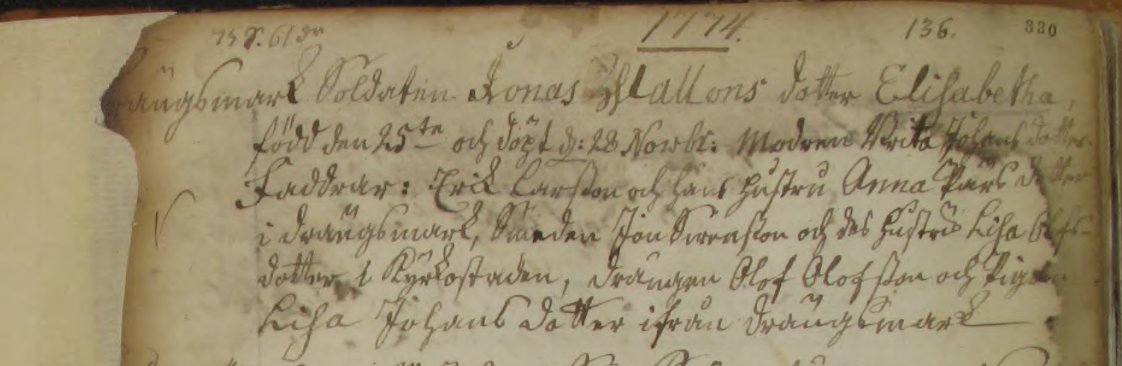 1774. 136. 330
Drängsmark Soldaten Jonas dotter Elisabetha,
född den 25te och döpt d: 28 Novbr: Modren Brita Johans dotter
Faddrar: Erik Larsson och hans hustru Anna Pärs dotter
i Drängsmark, Smeden Jon Swensson och des hustru Lisa Olofs-
dotter i Kyrkostaden, drängen Olof Olofsson och Pigan
Lisa Johans dotter ifrån Drängsmark